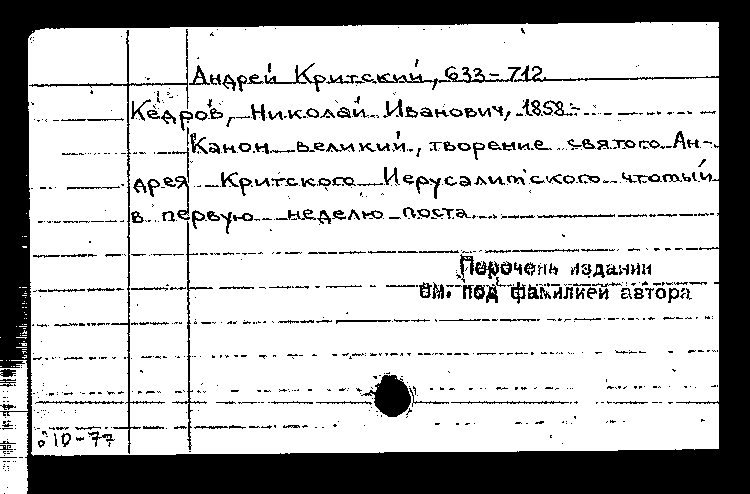 Андрей Критский, 633-712
Кедров, Николай Иванович, 1858-
Канон великий, творение святого Ан-
дрея Критского Иерусалимского чтомый
в первую неделю поста
Перечень издании
см. под фамилией автора
10-77